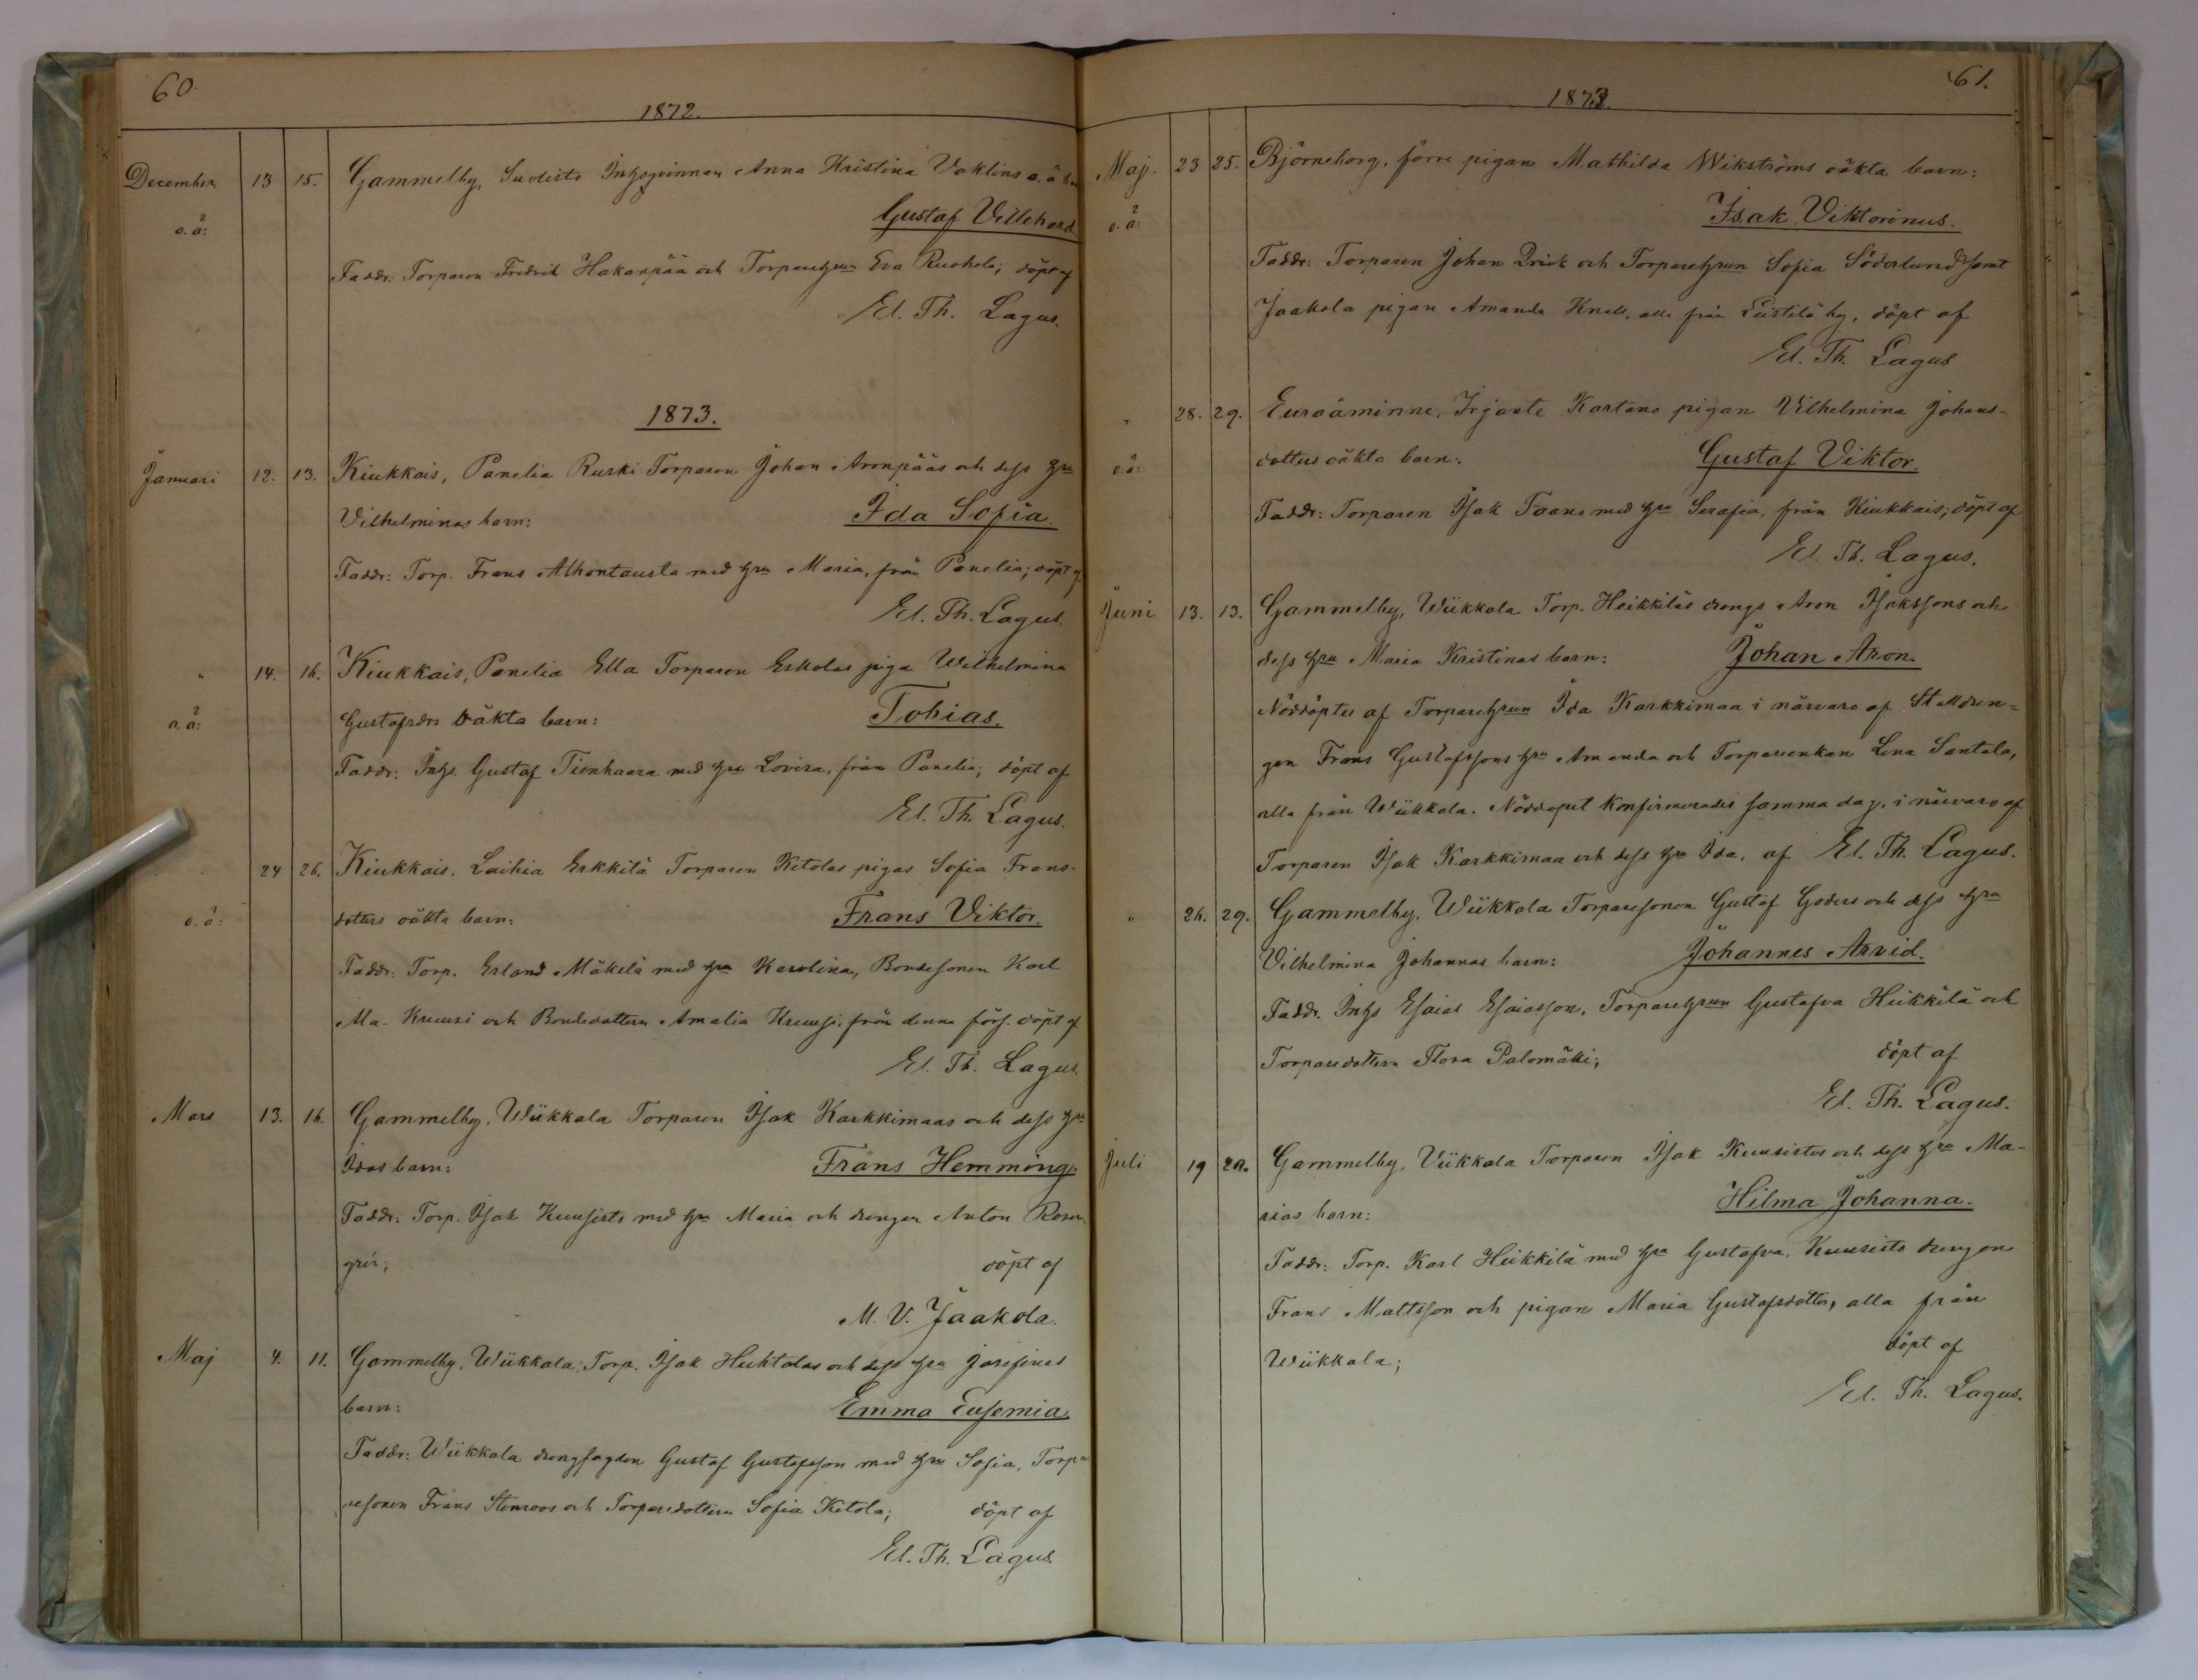 60.
1872.
December 13 15. Gammelby, Suolisto Inhysqvinnan Anna Kristina Vaktins o.ä. barn
o.ä: Gustaf Villehard
Faddr: Torparen Fredrik Hakanpää och Torparehustrun Eva Ruohola; döpt af
El. Th. Lagus.
1873.
Januari 12. 13. Kiukkais, Panelia Ruski Torparen Johan Aronpääs och dess hru
Vilhelminas barn: Ida Sofia.
Faddr: Torp. Frans Alhontausta med hru Maria, från Panelia; döpt af
El. Th. Lagus.
" 14. 16. Kiukkais, Panelia Ella Torparen Eskolas piga Wilhelmina
o.ä: Gustafsdrs oäkta barn: Tobias.
Faddr: Inhs. Gustaf Tienhaara med hru Lovisa, från Panelia; döpt af
El. Th. Lagus.
24 26. Kiukkais, Laihia Erkkilä Torparen Ketolas pigas Sofia Frans-
o.ä: dotters oäkta barn: Frans Viktor.
Faddr: Torp. Erland Mäkelä med hru Karolina, Bondesonen Karl
Ma- Kruusi och Bondedottern Amalia Kruusi, från denna förs. döpt af
El. Th. Lagus.
Mars 13. 16. Gammelby, Wiikkala Torparen Isak Karkkimaas och dess hru
Idas barn: Frans Hemming.
Faddr: Torp. Isak Kuusisto med hru Maria och drengen Anton Rosen-
grén; döpt af
M. V. Jaakola.
Maj 4. 11. Gammelby, Wiikkala Torp. Isak Huhtalas och dess hru Josefinas
barn: Emma Eufemia.
Faddr: Wiikkala drengfogden Gustaf Gustafsson med hru Sofia, Torpa-
resonen Frans Stenroos och Torparedottern Sofia Ketola; döpt af
El. Th. Lagus.
61.
1873.
Maj. 23 25. Björneborg, förre pigan Mathilda Wikströms oäkta barn:
o.ä: Isak Viktorinus.
Faddr: Torparen Johan Qrick och Torparehrun Sofia Söderlund samt
Jaakola pigan Amanda Knall, alla från Leistilä by, döpt af
El. Th. Lagus
" 28. 29. Euraåminne, Irjante Kartano pigan Vilhelmina Johans-
o.ä: dotters oäkta barn: Gustaf Viktor.
Faddr: Torparen Isak Taano med hru Serafia, från Kiukkais; döpt af
El. Th. Lagus.
Juni 13. 13. Gammelby, Wiikkala Torp. Heikkiläs drengs Aron Isakssons och
dess hru Maria Kristinas barn: Johan Aron.
Nöddöptes af Torparehrun Ida Karkkimaa i närvaro af Stalldren-
gen Frans Gustafssons hru Amanda och Torpareenkan Lena Santala,
alla från Wiikkala. Nöddopet konfirmerades samma dag, i närvaro af
Torparen Isak Karkkimaa och dess hru Ida, af El. Th. Lagus.
" 26. 29. Gammelby, Wiikkala Torparesonen Gustaf Goders och dess hru
Vilhelmina Johannas barn: Johannes Arvid.
Faddr. Inhs Esaias Esaiasson, Torparehrun Gustafva Heikkilä och
Torparedottern Flora Palomäki; döpt af
El. Th. Lagus.
Juli 19 20. Gammelby, Viikkala Torparen Isak Kuusistos och dess hru Ma-
rias barn: Hilma Johanna.
Faddr: Torp. Karl Heikkilä med hru Gustafva, Kuusisto drengen
Frans Mattsson och pigan Maria Gustafsdotter, alla från
Wiikkala; döpt af
El. Th. Lagus.